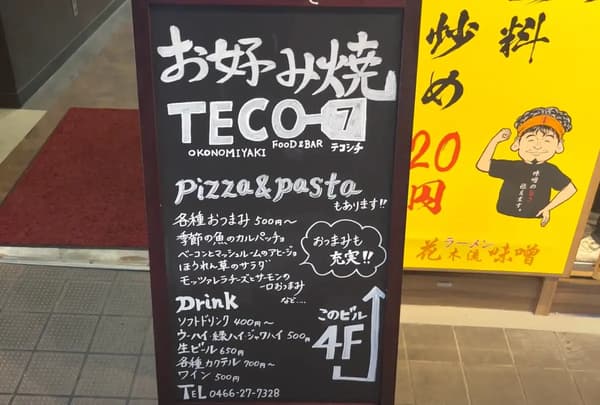 お好み焼
TECO 7
OKONOMIYAKI FOOD&BAR テコシチ
pizza&pasta
もあります!!
各種おつまみ 500円〜
季節の魚のカルパッチョ
ベーコンとマッシュルームのアヒージョ
ほうれん草のサラダ
モッツァレラチーズとサーモンの
一口おつまみ
など....
おつまみも
充実!!
Drink
ソフトドリンク 400円〜
ウーハイ・緑ハイ・ジャワハイ 500円
生ビール 650円
各種カクテル 700円〜
ワイン 500円
TEL 0466-27-7328
このビル
4F
料
炒め
20
円
味噌の
伝えます。
ラーメン
花木流味噌